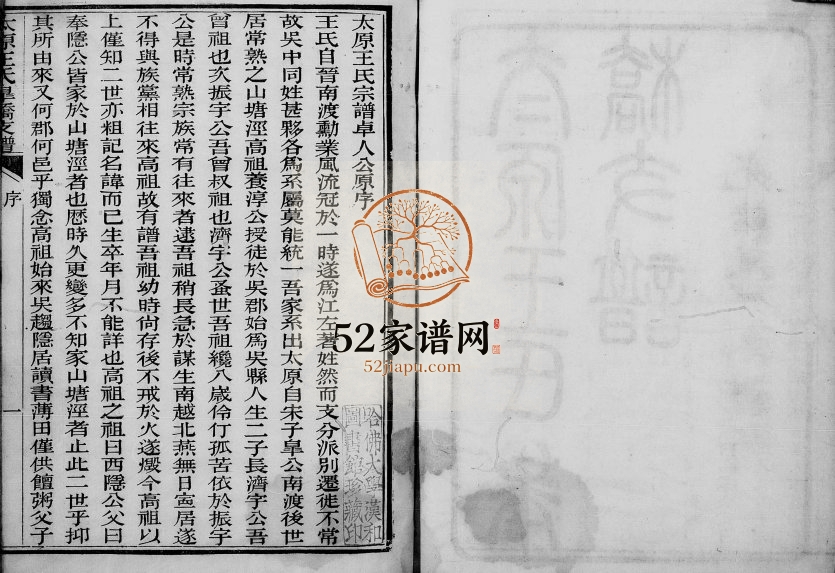 太原王氏宗譜卓人公原序
王氏自晉南渡勳業風流冠於一時遂爲江左著姓然而支分派別遷徙不常
故吳中同姓甚夥各爲系屬莫能統一吾家系出太原自宋子皐公南渡後世
居常熟之山塘涇高祖養淳公授徒於吳郡始爲吳縣人生二子長濟宇公吾
曾祖也次振宇公吾曾叔祖也濟宇公蚤世吾祖纔八歲伶仃孤苦依於振宇
公是時常熟宗族常有往來者逮吾祖稍長急於謀生南越北燕無日寍居遂
不得與族黨相往來高祖故有譜吾祖幼時尙存後不戒於火遂燬今高祖以
上僅知二世亦粗記名諱而已生卒年月不能詳也高祖之祖曰西隱公父曰
奉隱公皆家於山塘涇者也歷時久更變多不知家山塘涇者止此二世乎抑
其所由來又何郡何邑乎獨念高祖始來吳趨隱居讀書薄田僅供饘粥父子
太原王氏皐橋支譜
序
一
哈佛大學漢和
圖書館珍藏印
52家谱网
52jiapu.com